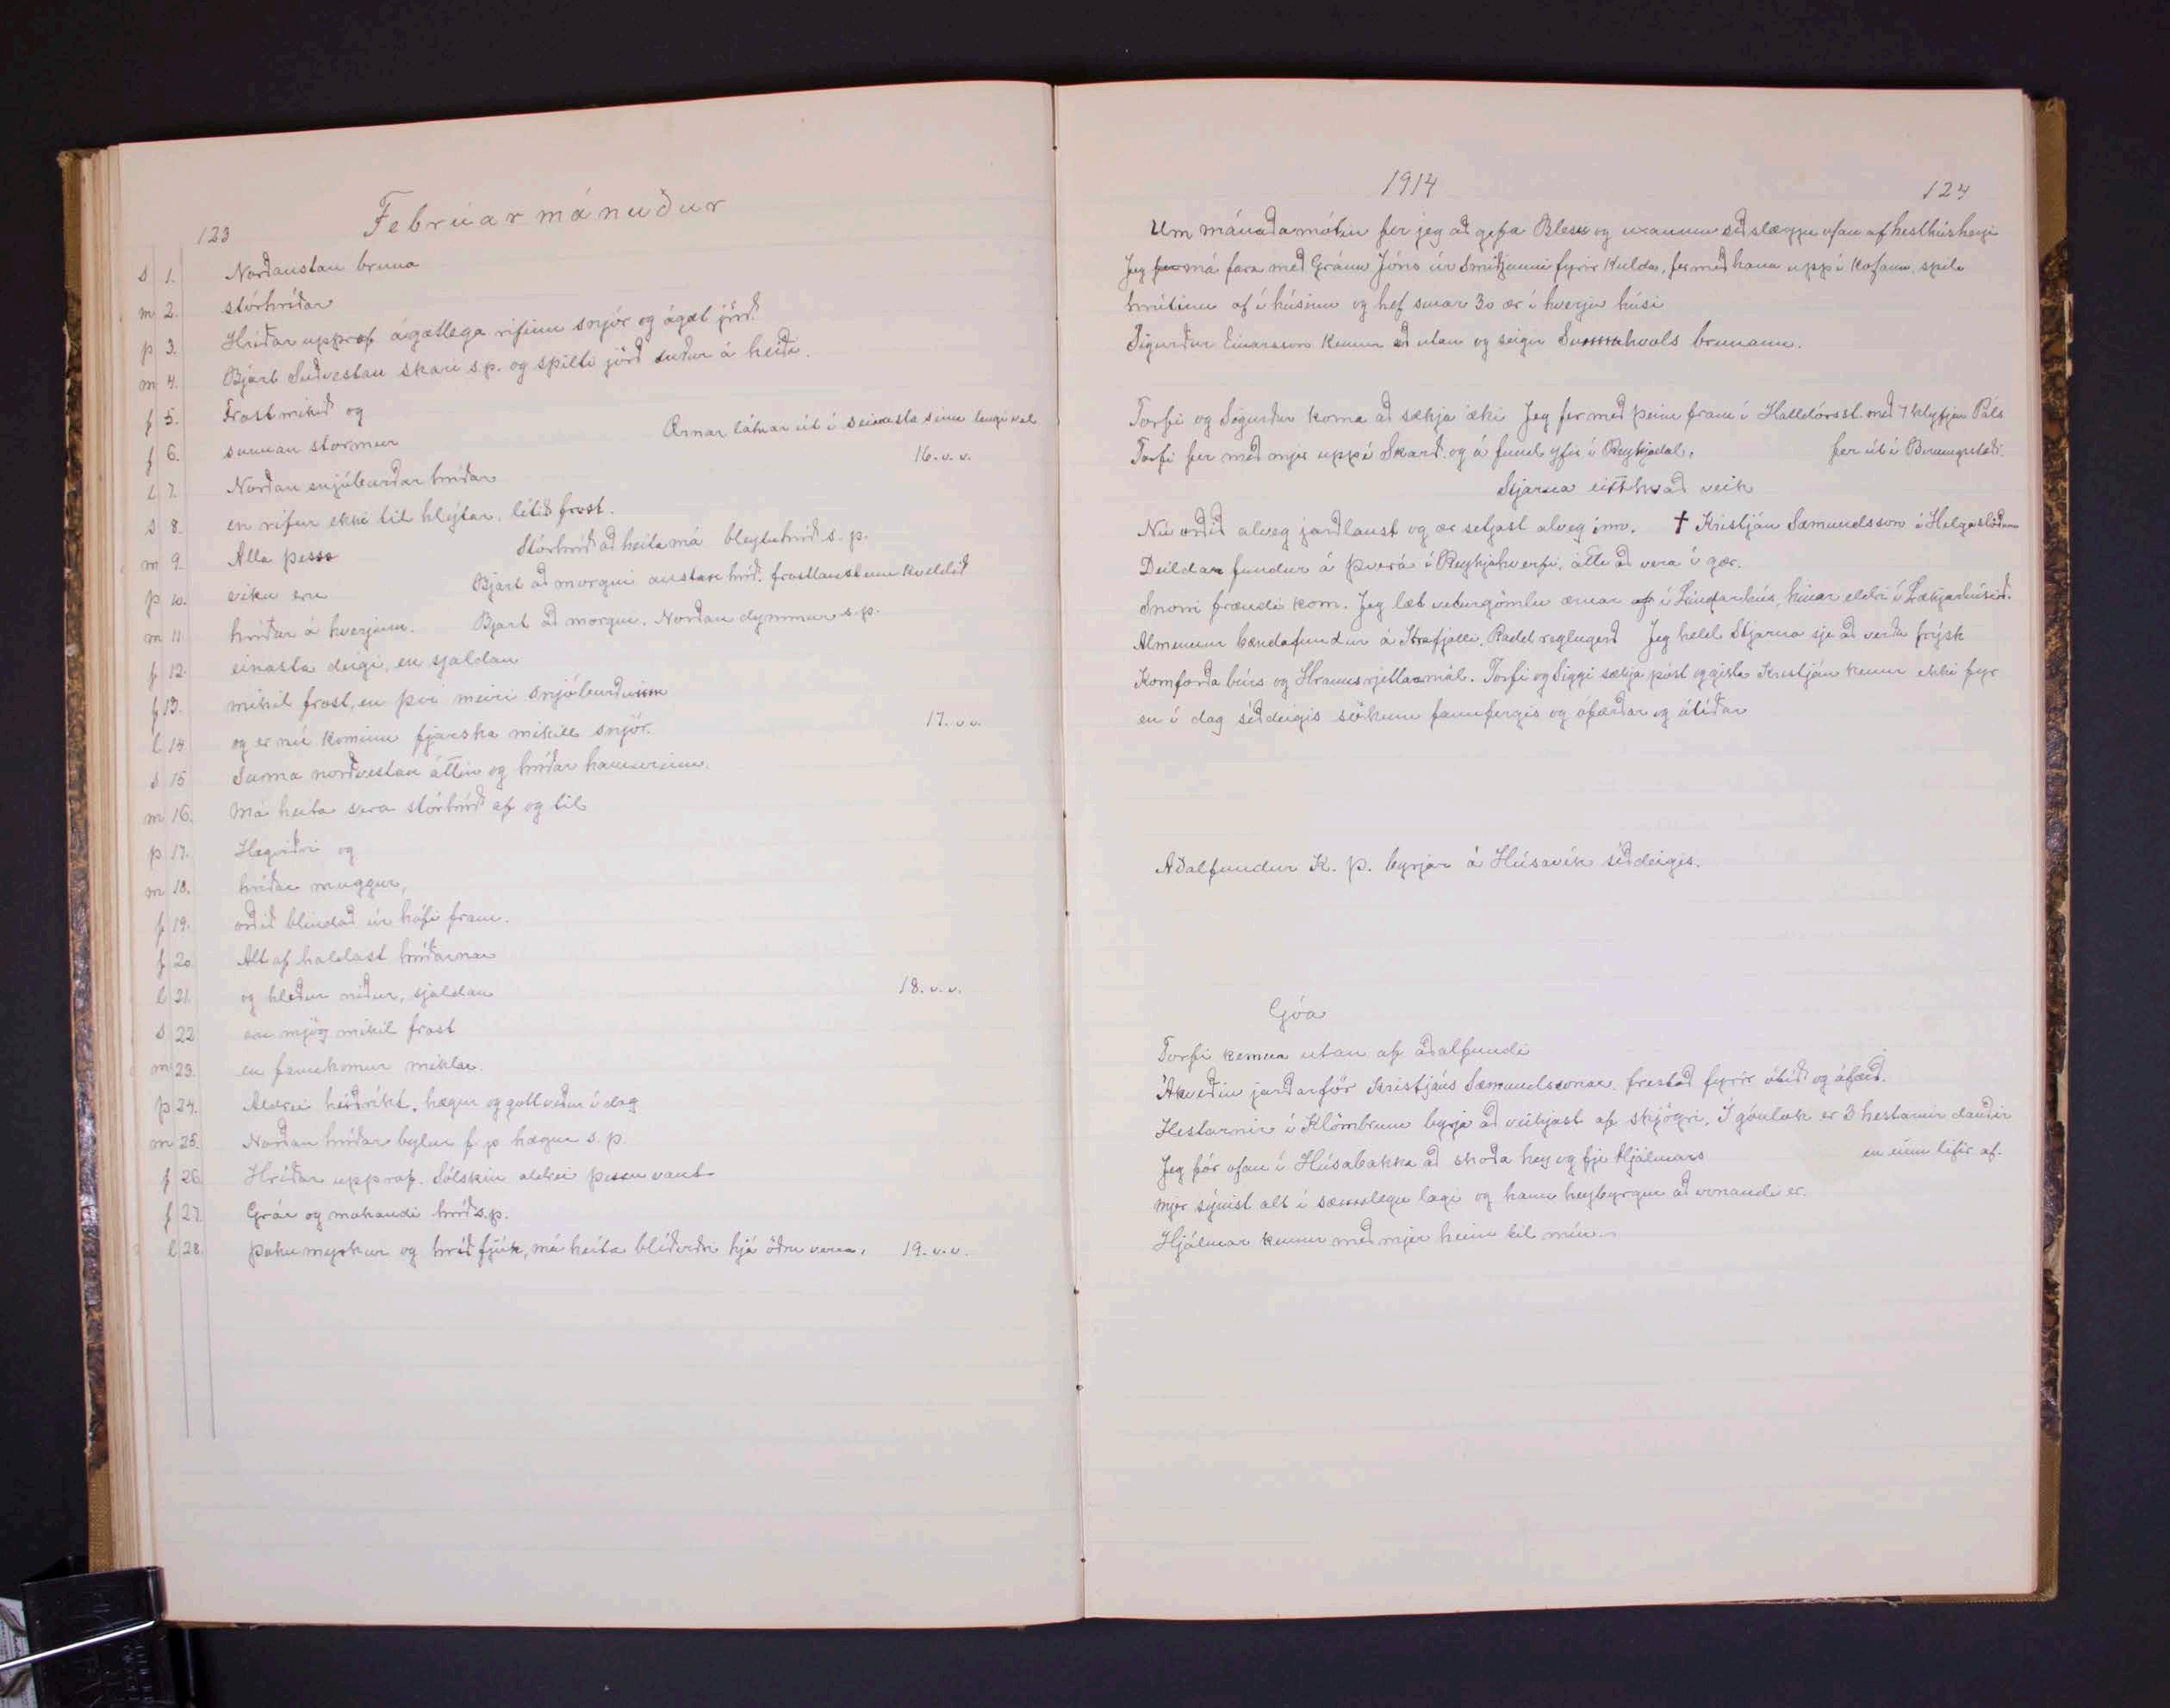 123
Febrúarmánuður
s 1. Norðaustan bruna
m 2. stórhríðar
þ 3. Hríðar upprof ágætlega rifinn snjór og ágæt jörð.
m 4. Bjart Suðvestan skari s.p. og spilti jörð suður á heiði.
f 5. Frost mikið og
f 6. sunnan stormur Ærnar látnar út í seinasta sinn lengi vel
l 7. Norðan snjóburðar hríðar 16. v. v.
s 8. en rifur ekki til hlýtar, lítið frost.
m 9. Alla þessa Stórhríð að heita má bleytuhríð s. p.
þ 10. viku eru Bjart að morgni austan hríð. frostlaust um kveldið
m 11. hríðar á hverjum Bjart að morgni. Norðan dymmur s.p.
f 12. einasta deigi, en sjaldan
f 13. mikil frost, en því meiri snjóburðurinn
l 14. og er nú kominn fjarska mikill snjór. 17. v.v.
s 15 Sama norðvestan áttin og hríðar hamurinn.
m 16. Má heita vera stórhríð af og til
þ 17. Hægviðri og
m 18. hríðar muggur,
f 19. orðið blindað úr hófi fram.
f 20. Alt af haldast hríðarnar
l 21. og hleður niður, sjaldan 18. v. v.
s 22 en mjög mikil frost
m 23. en fannkomur miklar.
þ 24. Aldrei heiðríkt, hægur og gott veður í dag
m 25. Norðan hríðar bylur f. p hægur s. p.
f 26. Hríðar upprof. Sólskin aldrei þessu vant
f 27. Grár og mokandi hríð s.p.
l 28. Þoku myrkur og hríð fjúk, má heita blíðviðri hjá öðru verra, 19. v. v.
1914
124
Um mánaðamótin fer jeg að gefa Bles og uxanum síðslægju ofan af hesthúsheyi
Jeg má fara með Grána Jóns úr Smiðjunni fyrir kulda, fer með hann upp í kofann, spila
hrútinn af í húsinu og hef svona 30 ær í hverju húsi
Sigurður Einarsson kemur að utan og seigir hvols brunann.
Torfi og Sigurður koma að sækja æki Jeg fer með þeim fram í Halldórsst. með 7 klyfjar Páls
Torfi fer með mjer upp í Skarð og á fund yfir í Reykjadal. fer út í Brunngstaði
Stjarna eitthvað veik
Nú orðið alveg jarðlaust og ær setjast alveg inn. † Kristján Sæmundsson á Helgastöðum
Deildar fundur á Þverá í Reykjahverfi, átti að vera í gær.
Snorri frændi kom. Jeg læt veturgömlu ærnar í Lindarhús, hinar eldri í Lækjarhúsið.
Almennur bændafundur á Ytrafjalli. Rædd reglugerð Jeg held Stjarna sje að verða frýsk
Kornforða búrs og Hraunsrjettarmál. Torfi og Siggi sækja póst og gista Kristján kemur ekki fyr
en í dag síðdeigis sökum fannfergis og ófærðar og ótíðar
Aðalfundur K. Þ. byrjar á Húsavík síðdeigis.
Góa
Torfi kemur utan af aðalfundi
Ákveðin jarðarför Kristjáns Sæmundssonar frestað fyrir ótíð og ófærð.
Hestarnir í Klömbrum byrja að veikjast af skjögri. Í góulok er 3 hestarnir dauðir
Jeg fór ofan í Húsabakka að skoða hey og fje Hjálmars en einn lifir af.
mjer sýnist alt í sæmilegu lagi og hann heybyrgur að vonandi er.
Hjálmar kemur með mjer heim til mín.